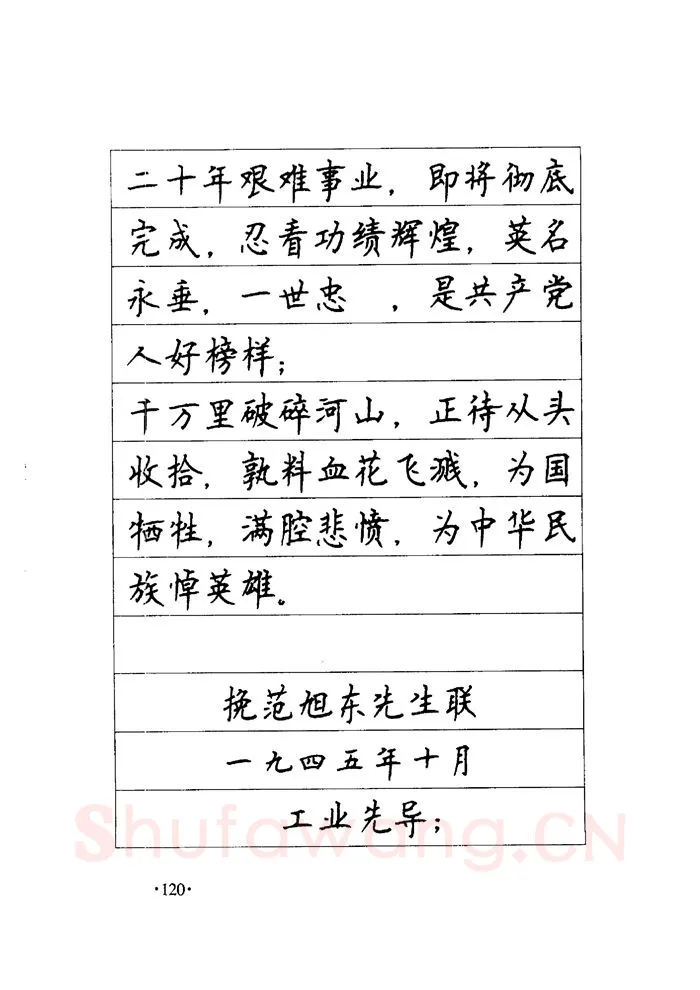 二十年艰难事业，即将彻底
完成，忍看功绩辉煌，英名
永垂，一世忠　，是共产党
人好榜样；
千万里破碎河山，正待从头
收拾，孰料血花飞溅，为国
牺牲，满腔悲愤，为中华民
族悼英雄。
挽范旭东先生联
一九四五年十月
工业先导；
Shufawang.CN
·120·